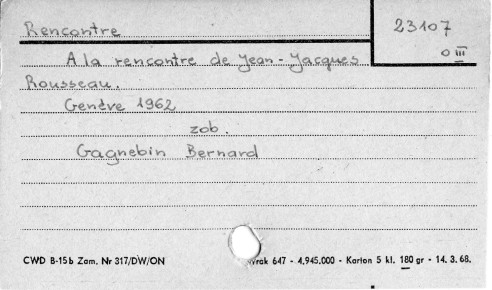 Rencontre
23107
0 III
A la rencontre de Jean-Jacques
Rousseau.
Genève 1962
zob.
Gagnebin Bernard
CWD B-15b Zam. Nr 317/DW/ON
Wrak 647 - 4,945.000 - Karton 5 kl. 180 gr - 14. 3. 68.